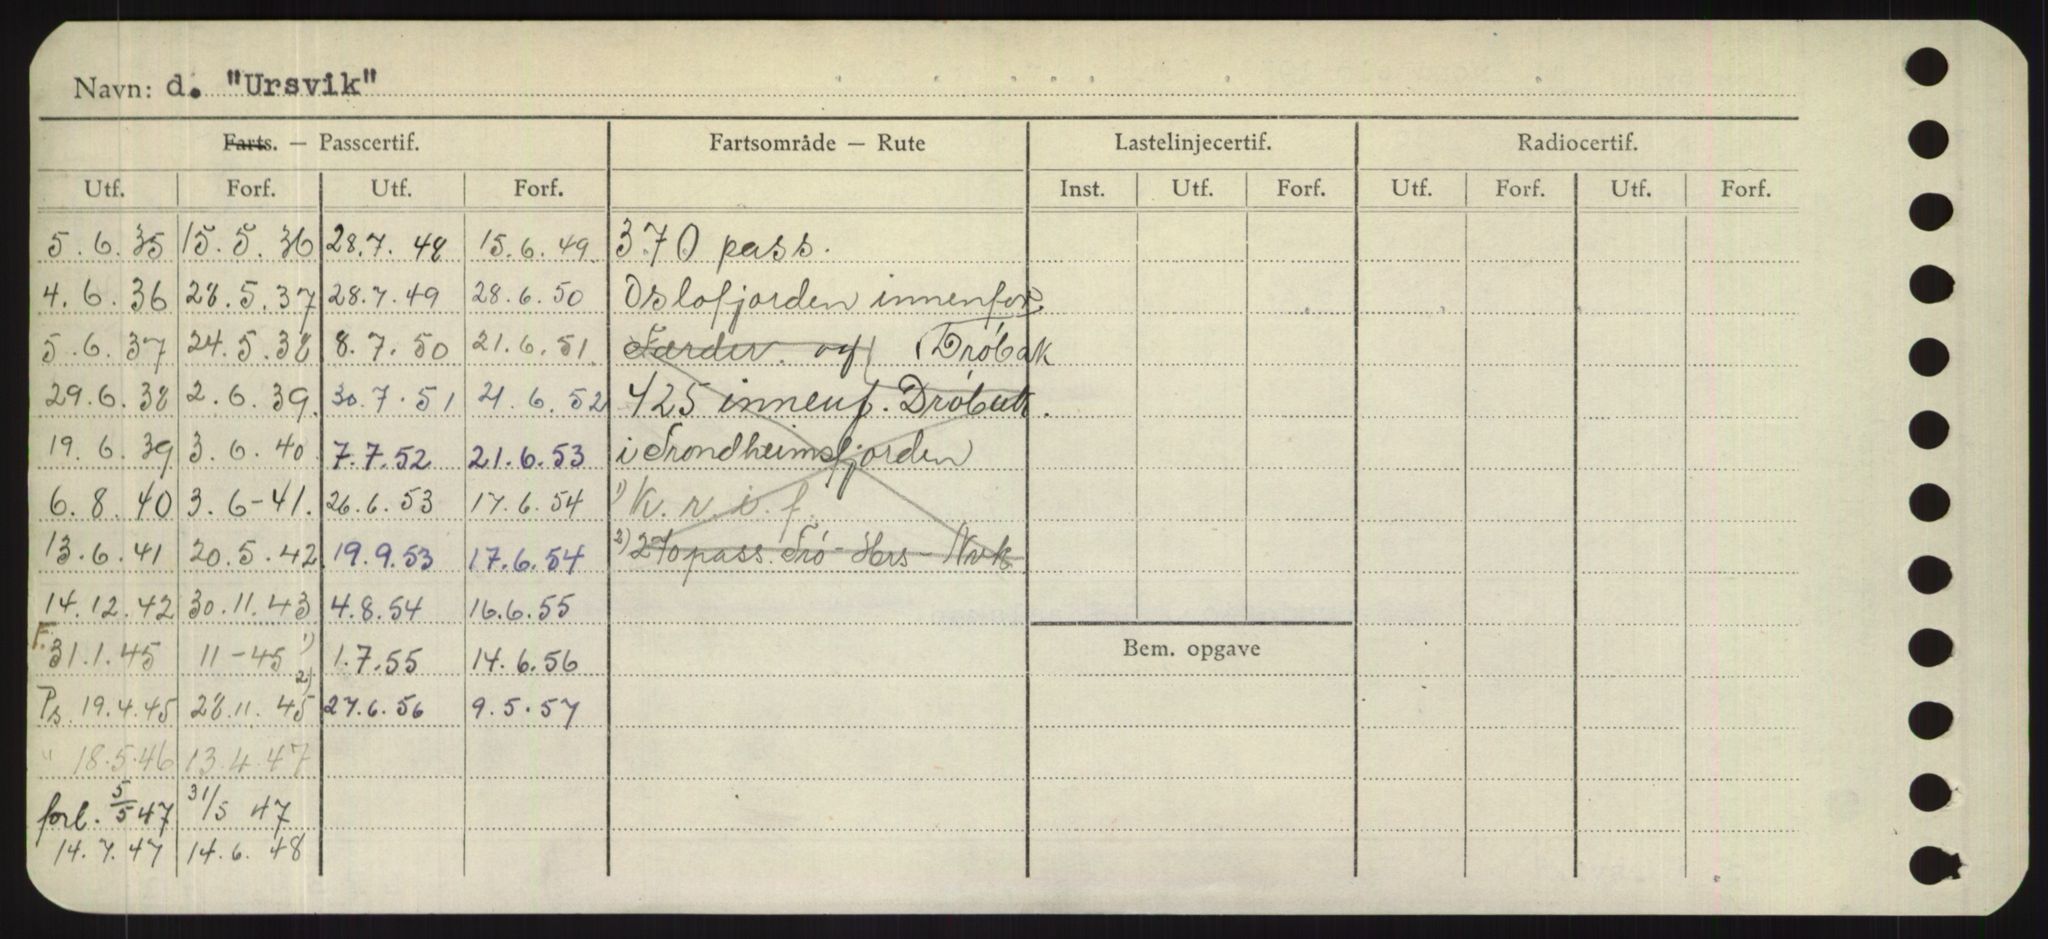 Navn: d. "Ursvik"
Farts. — Passcertif. Fartsområde — Rute Lastelinjecertif. Radiocertif.
Utf. Forf. Utf. Forf. Inst. Utf. Forf. Utf. Forf. Utf. Forf.
5.6.35 15.5.36 28.7.48 15.6.49 370 pass.
4.6.36 28.5.37 28.7.49 28.6.50 Oslofjorden innenfor
5.6.37 24.5.38 8.7.50 21.6.51 Færder. og Drøbak
29.6.38 2.6.39. 30.7.51 21.6.52 425 innenf. Drøbak.
19.6.39 3.6.40 7.7.52 21.6.53 i Trondheimsfjorden
6.8.40 3.6-41. 26.6.53 17.6.54 1) K.r.i.f.
13.6.41 20.5.42 19.9.53 17.6.54 2) 270 pass. Trö - Hrs - Nvk
14.12.42 30.11.43 4.8.54 16.6.55
F. 31.1.45 11-45 1) 1.7.55 14.6.56 Bem. opgave
Ps. 19.4.45 28.11.45 2) 27.6.56 9.5.57
" 18.5.46 13.4.47
forl. 5/5 47 31/5 47
14.7.47 14.6.48